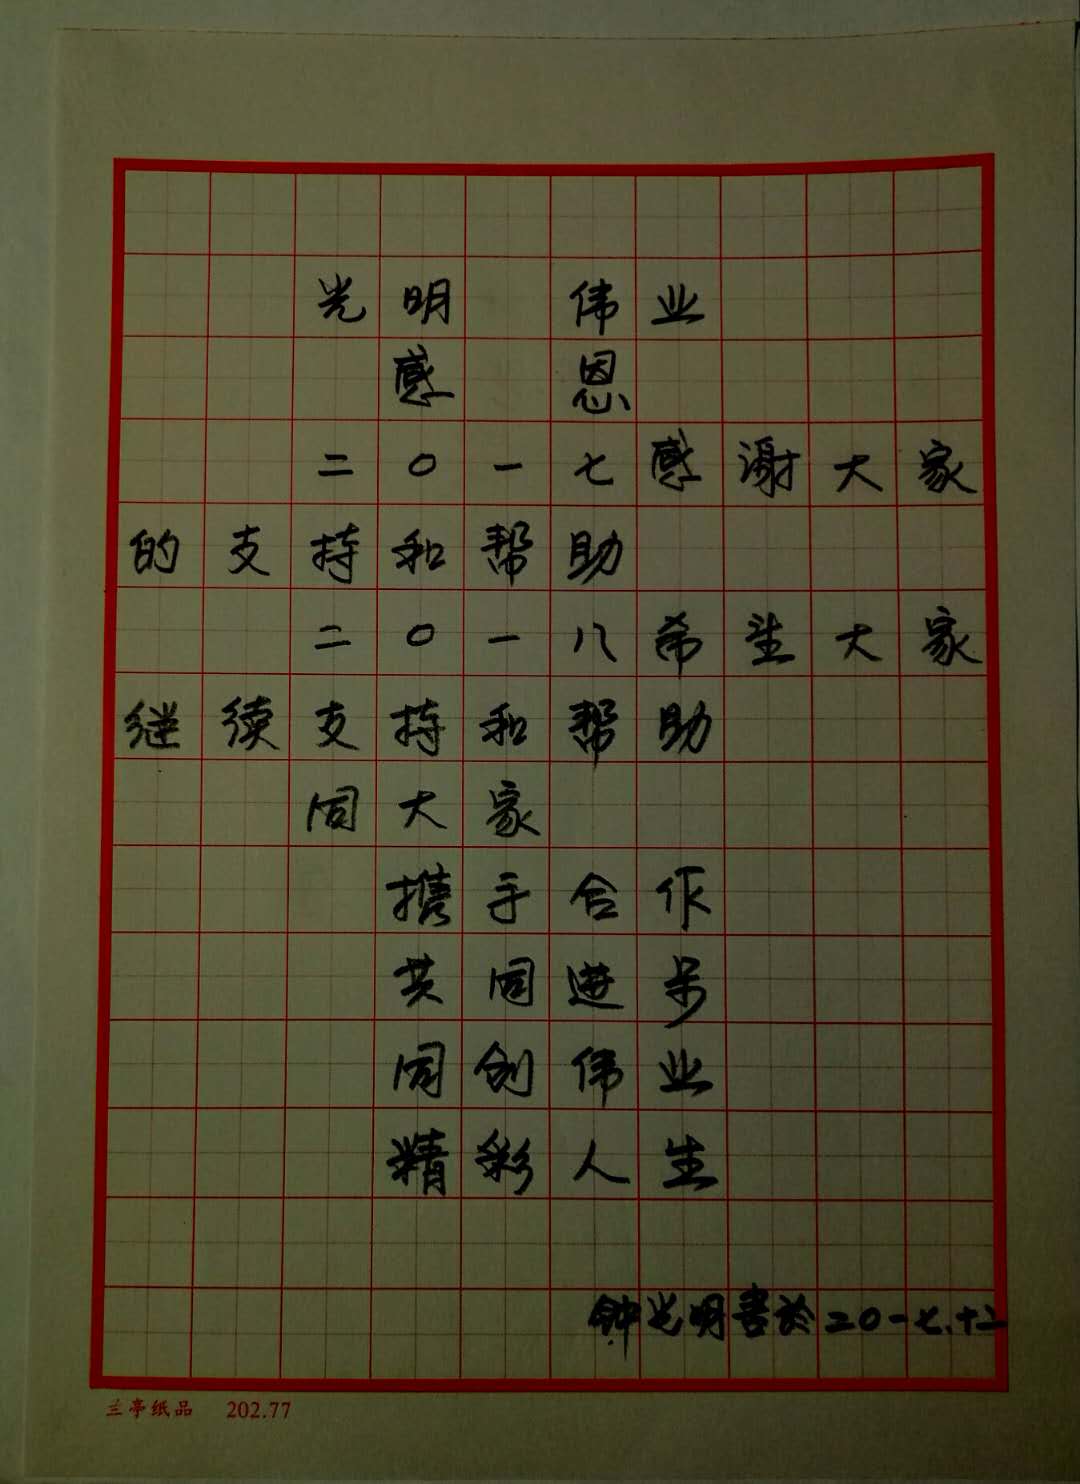 光明 伟业
感 恩
二〇一七感谢大家
的支持和帮助
二〇一八希望大家
继续支持和帮助
同大家
携手合作
共同进步
同创伟业
精彩人生
钟光明书於二〇一七.十二
兰亭纸品 202.77